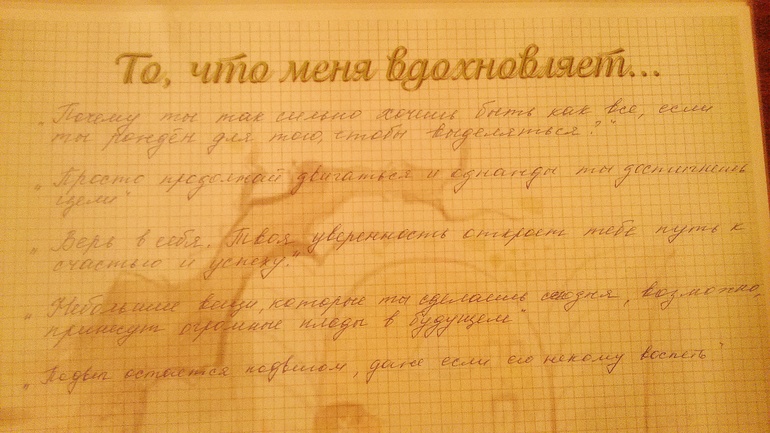 То, что меня вдохновляет...
„Почему ты так сильно хочешь быть как все, если
ты рождён для того, чтобы выделяться?“
„Просто продолжай двигаться и однажды ты достигнешь
цели“
„Верь в себя. Твоя уверенность откроет тебе путь к
счастью и успеху.“
„Небольшие вещи, которые ты сделаешь сегодня, возможно,
принесут огромные плоды в будущем“
„Подвиг остаётся подвигом, даже если его некому воспеть“